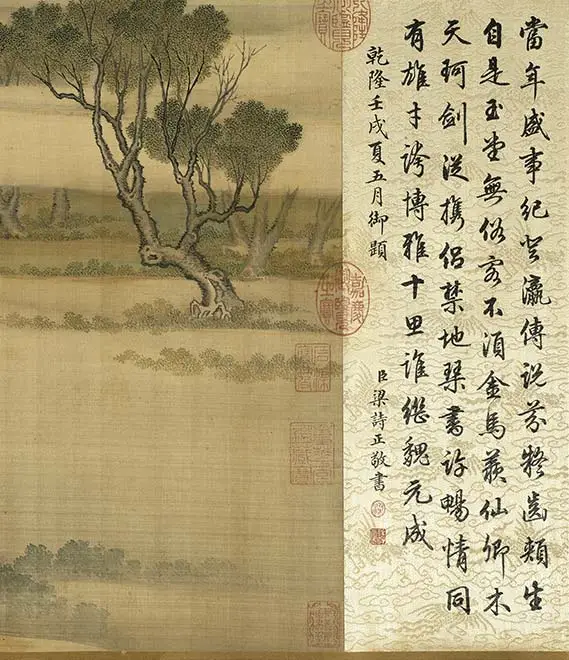 當年盛事紀登瀛傳說芬齒頰生
自是玉堂無俗客不須金馬羨仙卿木
天珂劍從攜侶禁地琴書許暢情同
有雄才誇博雅十思誰繼魏元成
乾隆壬戌夏五月御題
臣梁詩正敬書
嘉慶御覽之寶